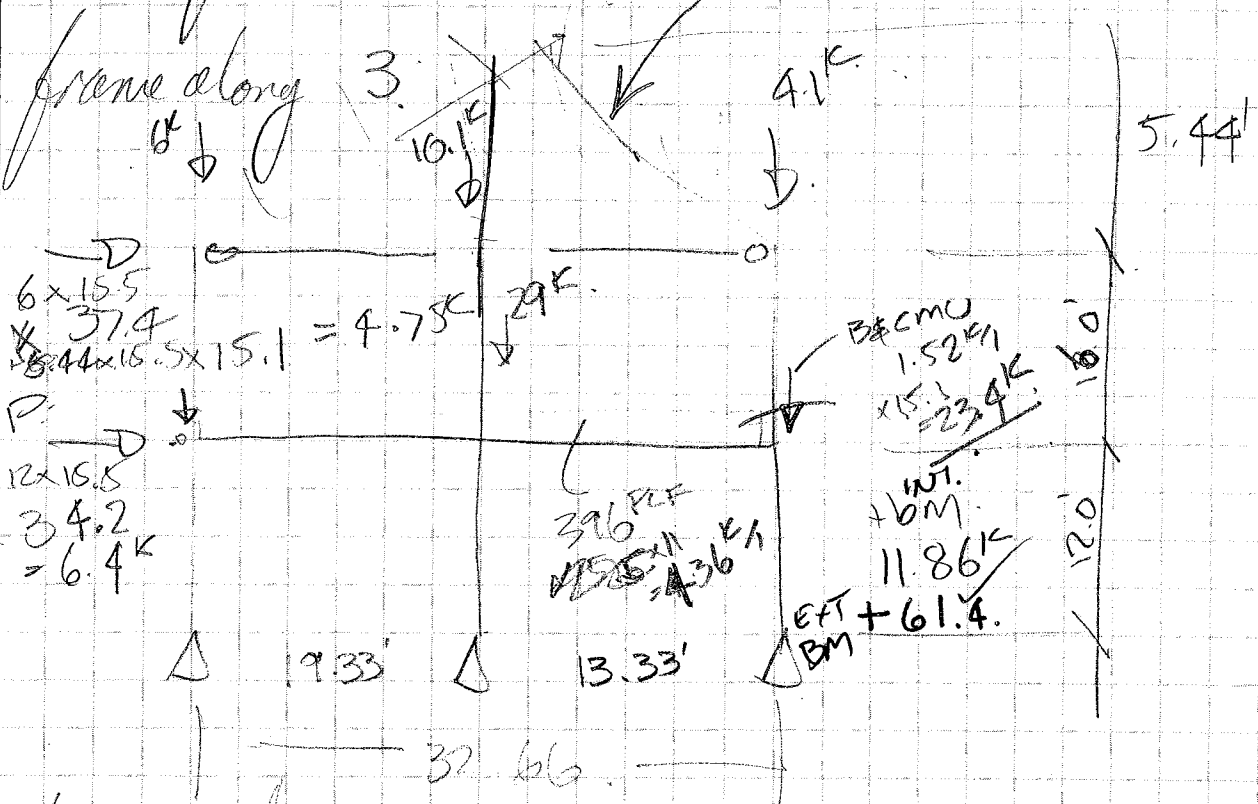 frame along 3.
6K
10.1K
4.1K
5.44'
6 x 15.5
x 37.4
15.5 x 15.1 = 4.75K
29K.
B&CMU
1.52K/1
x15.1
=23.4K
P:
12 x 15.5
34.2
= 6.4K
396 PLF
x11
=4.36K/1
INT.
+bm.
11.86K
EXT + 61.4.
BM
12.0'
19.33'
13.33'
32.66